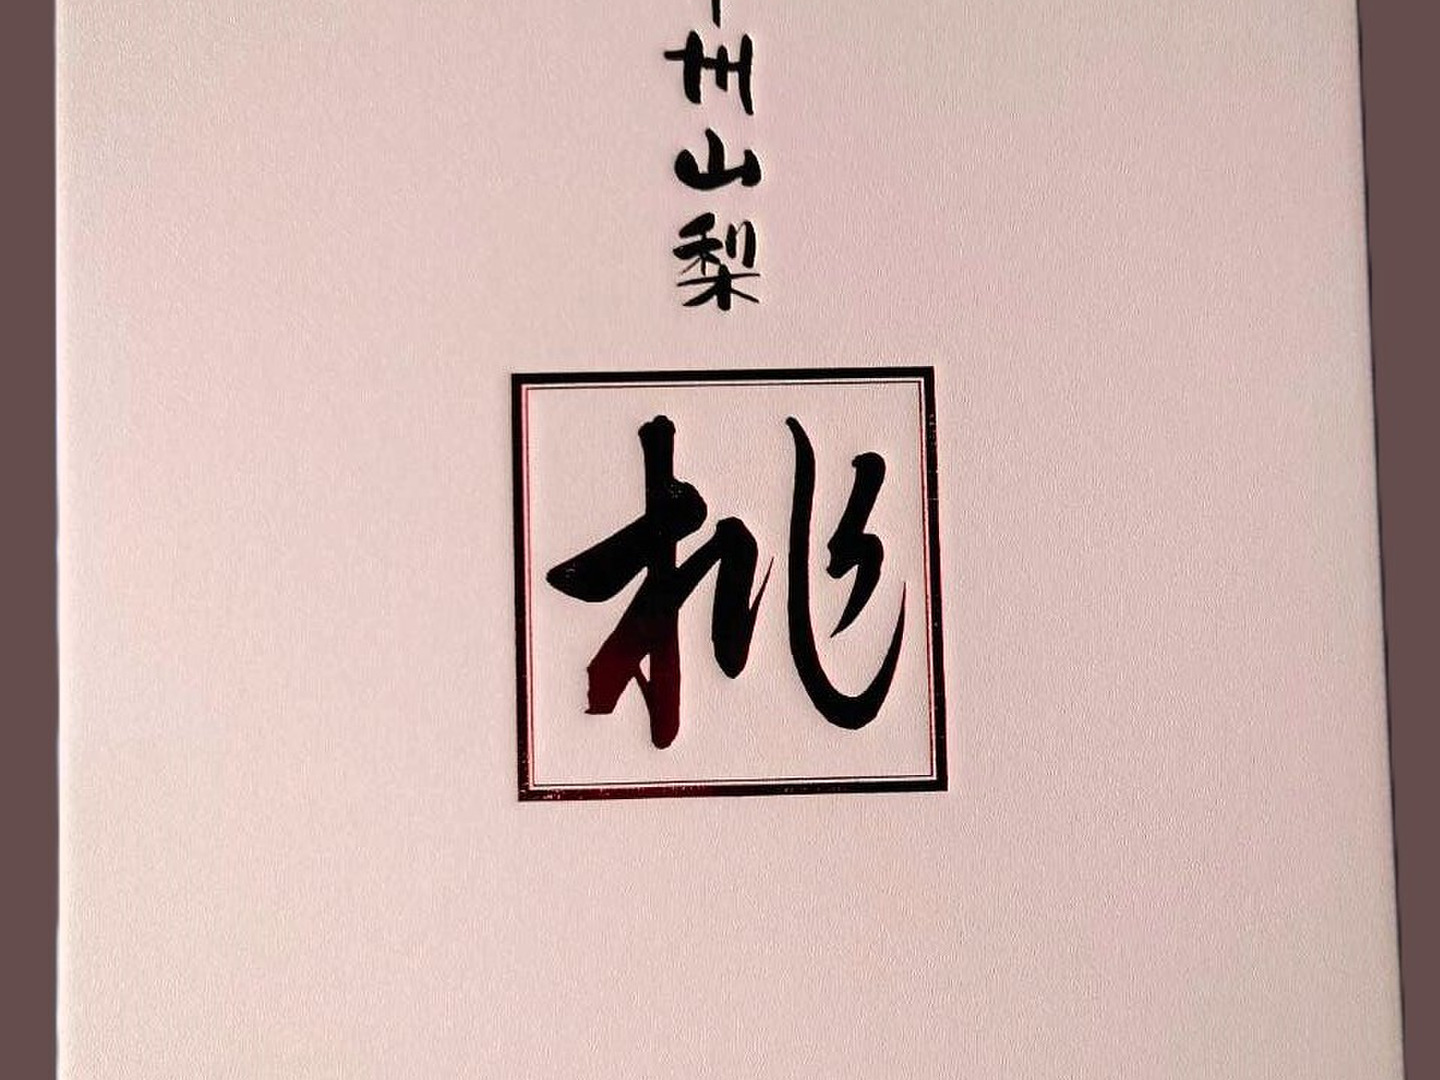 州山梨
桃